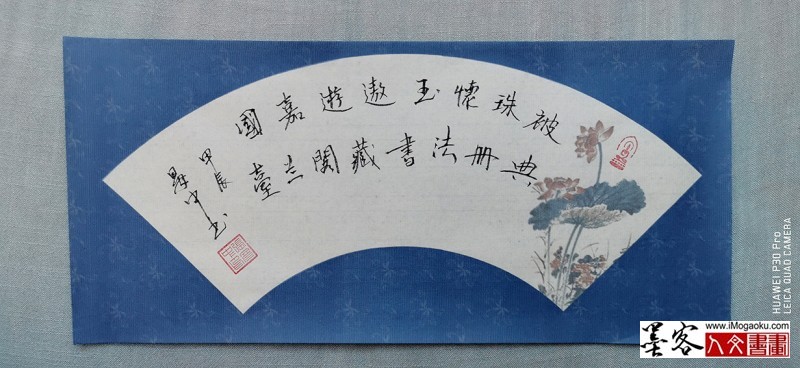 被珠懷玉遨遊嘉國
典册法書藏閣兰臺
甲辰
昇中书
HUAWEI P30 Pro
LEICA QUAD CAMERA
www.iMogaoku.com
墨客
人文書畫